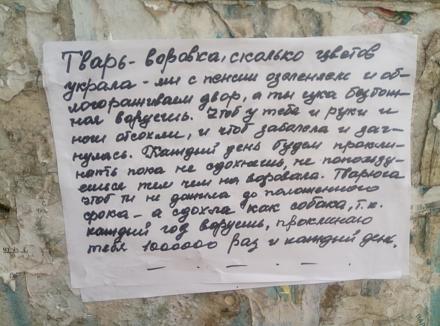 Тварь - воровка, сколько цветов
украла - мы с пенсии озеленяем и об-
лагораживаем двор, а ты сука безбож-
ная воруешь. Чтоб у тебя и руки и
ноги отсохли, и чтоб заболела и заг-
нулась. Каждый день будем прокли-
нать пока не сдохнешь, не попользу-
ешься тем чем наворовала. Тварюга
чтоб ти не дожила до положенного
срока - а сдохла как собака, т.к.
каждый год воруешь, проклинаю
тебя 1000000 раз и каждый день.